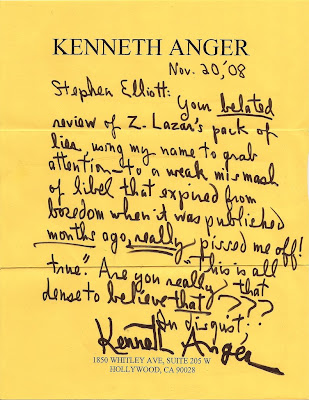 KENNETH ANGER
Nov. 20, '08
Stephen Elliott:
Your belated
review of Z. Lazar's pack of
lies, using my name to grab
attention—to a weak mismash
of libel that expired from
boredom when it was published
months ago, really pissed me off!
"This is all
true". Are you really that
dense to believe that????
In disgust,
Kenneth Anger
1850 WHITLEY AVE, SUITE 205 W
HOLLYWOOD, CA 90028